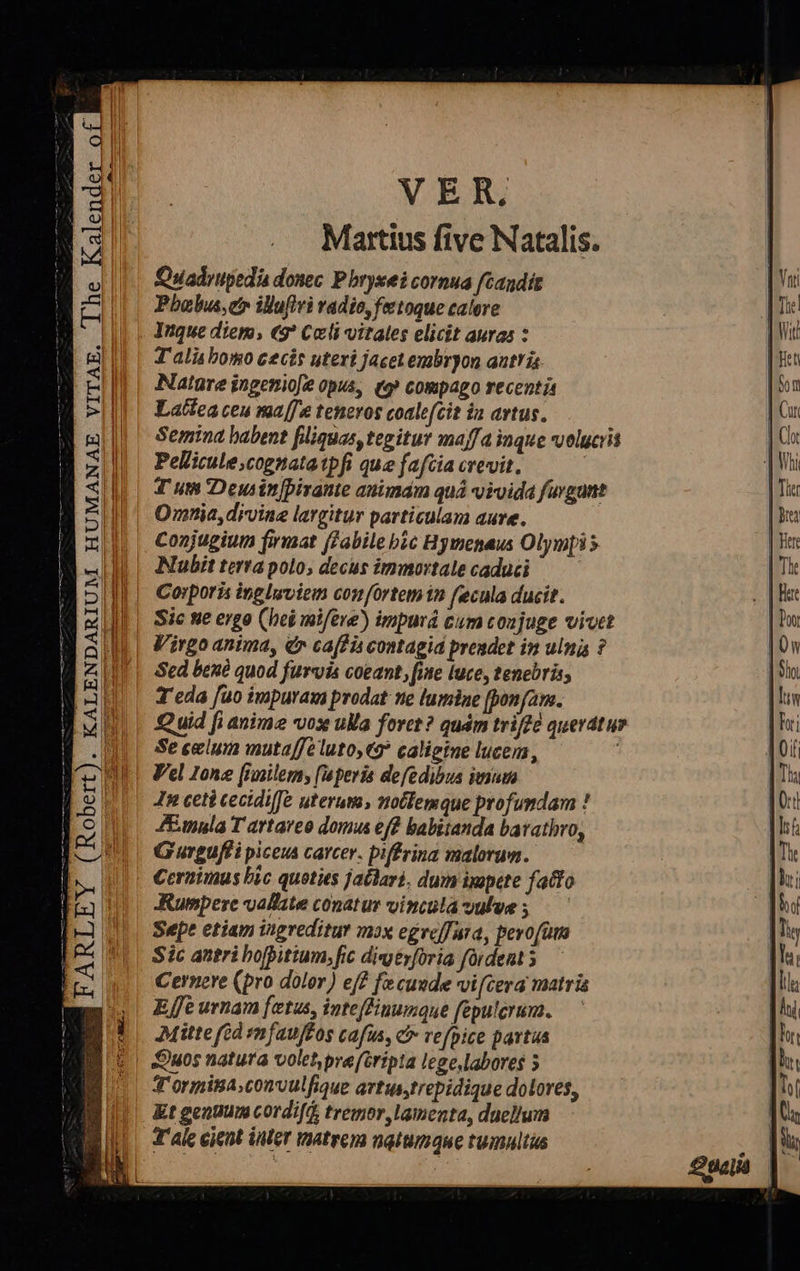 VER.
Martius ſive Natalis.
Quadrupedis donec Phryxei cornua ſcandit
Phœbus, & illuſtri radio, fœtoque calore
Inque diem, & Cœli vitales elicit auras :
Talis homo cecis uteri jacet embryon antris
Nature ingenioſæ opus, & compago recentis
Lactea ceu maſſæ teneros coaleſcit in artus.
Semina habent ſiliquas, tegitur maſſa inque volucris
Pellicule, cognata ipſi quæ faſcia crevit.
Tum Deus inſpirante animam quâ vivida ſurgunt
Omnia, divinæ largitur particulam auræ.
Conjugium firmat ſtabile hîc Hymenæus Olympi ;
Nubit terra polo, decus immortale caduci
Corporis ingluviem conſortem in ſæcula ducit.
Sic ne ergo (hei miſeræ) impurâ cum conjuge vivet
Virgo anima, & caſtis contagia prendet in ulnis ?
Sed benè quod furvis coeant, ſine luce, tenebris,
Teda ſuo impuram prodat ne lumine ſponſam.
Quid ſi animæ vox ulla foret ? quàm triſtè querátur
Se cœlum mutaſſe luto, & caligine lucem,
Vel Zonæ ſimilem, ſuperis de ſedibus imum
In ceti cecidiſſe uterum, noctemque profundam !
Æmula Tartareo domus eſt habitanda barathro,
Gurguſti piceus carcer. piſtrina malorum.
Cernimus hîc quoties jactari. dum impete facto
Rumpere vallatæ conatur vincula vulvæ ;
Sæpe etiam ingreditur mox egreſſura, peroſum
Sic antri hoſpitium, ſic diverſoria ſordent ;
Cernere (pro dolor) eſt fœcundæ viſcera matris
Eſſe urnam fœtus, inteſtinumque ſepulcrum.
Mitte ſed infauſtos caſus, & reſpice partus
Quos natura volet, præſcripta lege, labores ;
Tormina, convulſique artus, trepidique dolores,
Et genuum cordiſq; tremor, lamenta, duellum
Tale cient inter matrem natumque tumultus
Qualis
FARLEY (Robert). KALENDARIUM HUMANAE VITAE. The Kalender of